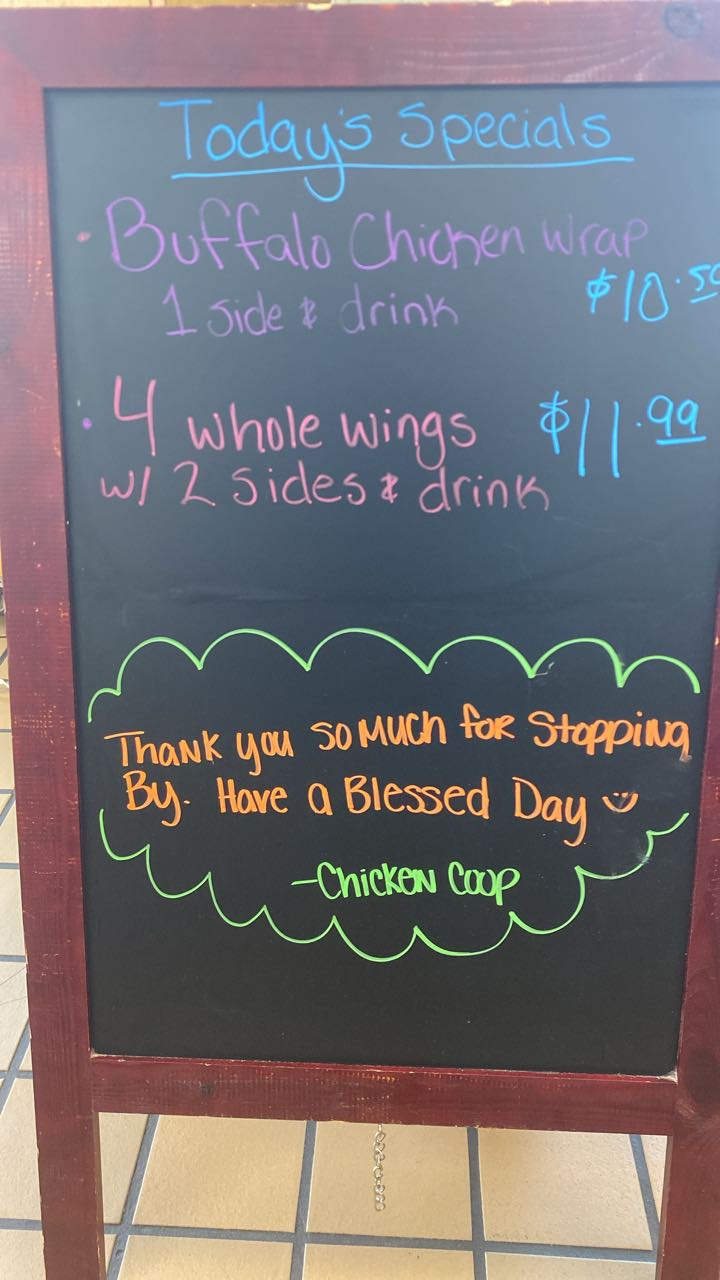 Today's Specials
Buffalo Chicken Wrap
1 Side & drink $10.50
4 whole wings $11.99
w/ 2 Sides & drink
Thank you so much for Stopping
By. Have a Blessed Day
-Chicken Coop